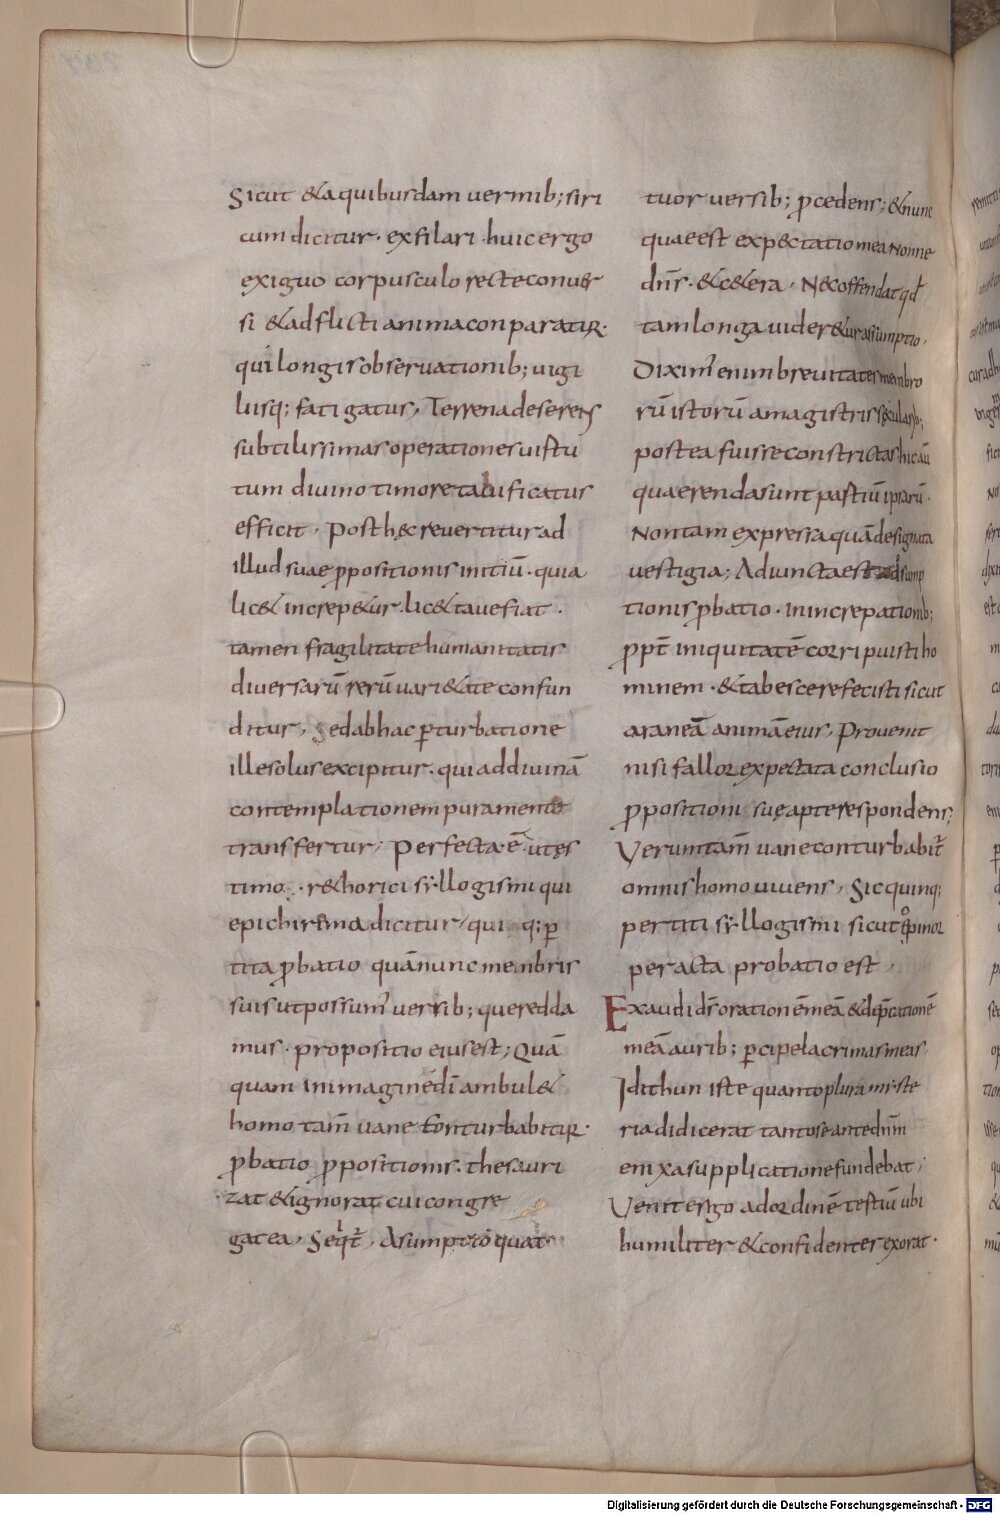 Sicut & a quibusdam uermib; siri
cum dicitur · exfilari · huic ergo
exiguo corpusculo recte conuer
si & adflicti anima conparatur ·
qui longis obseruationib; uigi
liisq; fatigatus, Terrena deserens
subtilissimas operationes uistu
tum diuino timore tabificatus
efficit · Post hęc reuertitur ad
illud suae ꝓpositionis initiū · quia
lic& increp&ur · lic& tauefiat ·
tamen fragilitate humanitatis
diuersarū rerū uari&ate confun
ditur, sed ab hac ꝑturbatione
ille solus excipitur · qui ad diuinā
contemplationem pura mente
transfertur, Perfecta · ē · ut ęs
timo · r&horici syllogismi qui
epichirema dicitur, qui q; ꝑ
tita ꝓbatio quā nunc membris
suis ut possum' uersib; que redda
mus · propositio eius est; Quā
quam in imagine dī ambul&
homo tam̄ uane conturbabitur ·
ꝓbatio ꝓpositionis · thesauri
zat & ignorat cui congre
gat ea, Seqt̄, Asumptio quat
tuor uersib; ꝓcedens; & nunc
quae est exp&ctatio mea Nonne
dn̄s · & c&era, Nec offendat qđ
tam longa uider&ur assumptio,
Dixim' enim breuitates membro
rū istorū a magistris sęcularib;
postea fuisse constrictas hic aū
quaerenda sunt pastiū ipsarū ·
Non tam expressa quā designata
uestigia; Adiuncta est adsump
tionis ꝓbatio · in increpationib;
ꝓpt̄ iniquitatē corripuisti ho
minem · & tabescere fecisti sicut
araneā animā eius, Prouenit
nisi fallor expectata conclusio
ꝓpositioni suę apte respondens;
Uerumtam̄ uane conturbabit̄
omnis homo uiuens, Sic quinq;
pertiti syllogismi sicut opinor
peracta probatio est,
Exaudi dn̄s orationē meā & dep̄cationē
meā aurib; ꝑcipe lacrimas meas
Idithun iste quanto plura miste
ria didicerat tanto se ante dn̄m
enixa supplicatione fundebat,
Uenit ergo ad ordinē testiū ubi
humiliter & confidenter exorat ·
Digitalisierung gefördert durch die Deutsche Forschungsgemeinschaft - DFG